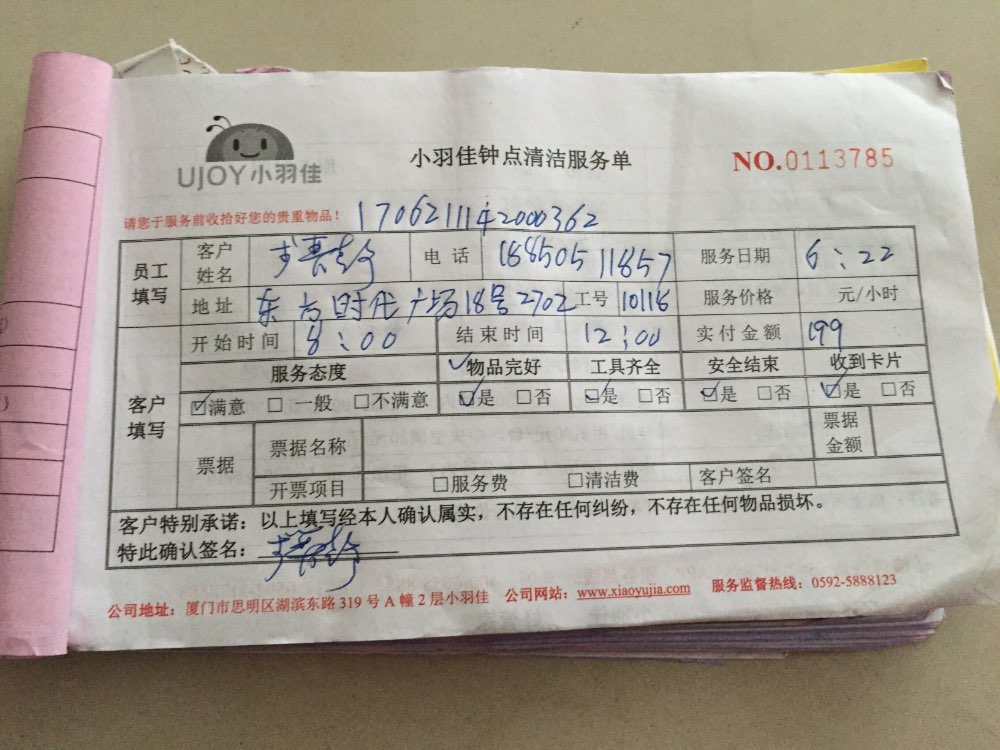 UJOY小羽佳
小羽佳钟点清洁服务单
NO.0113785
请您于服务前收拾好您的贵重物品！
员工填写 客户姓名 电话 18850511857 服务日期 6:22
地址 东方时代广场18号2702 工号 10116 服务价格 元/小时
开始时间 8:00 结束时间 12:00 实付金额 199
客户填写 服务态度 物品完好 工具齐全 安全结束 收到卡片
☑满意 □一般 □不满意 ☑是 □否 ☑是 □否 ☑是 □否 ☑是 □否
票据 票据名称 票据金额
开票项目 □服务费 □清洁费 客户签名
客户特别承诺：以上填写经本人确认属实，不存在任何纠纷，不存在任何物品损坏。
特此确认签名：
公司地址：厦门市思明区湖滨东路319号A幢2层小羽佳 公司网站：www.xiaoyujia.com 服务监督热线：0592-5888123